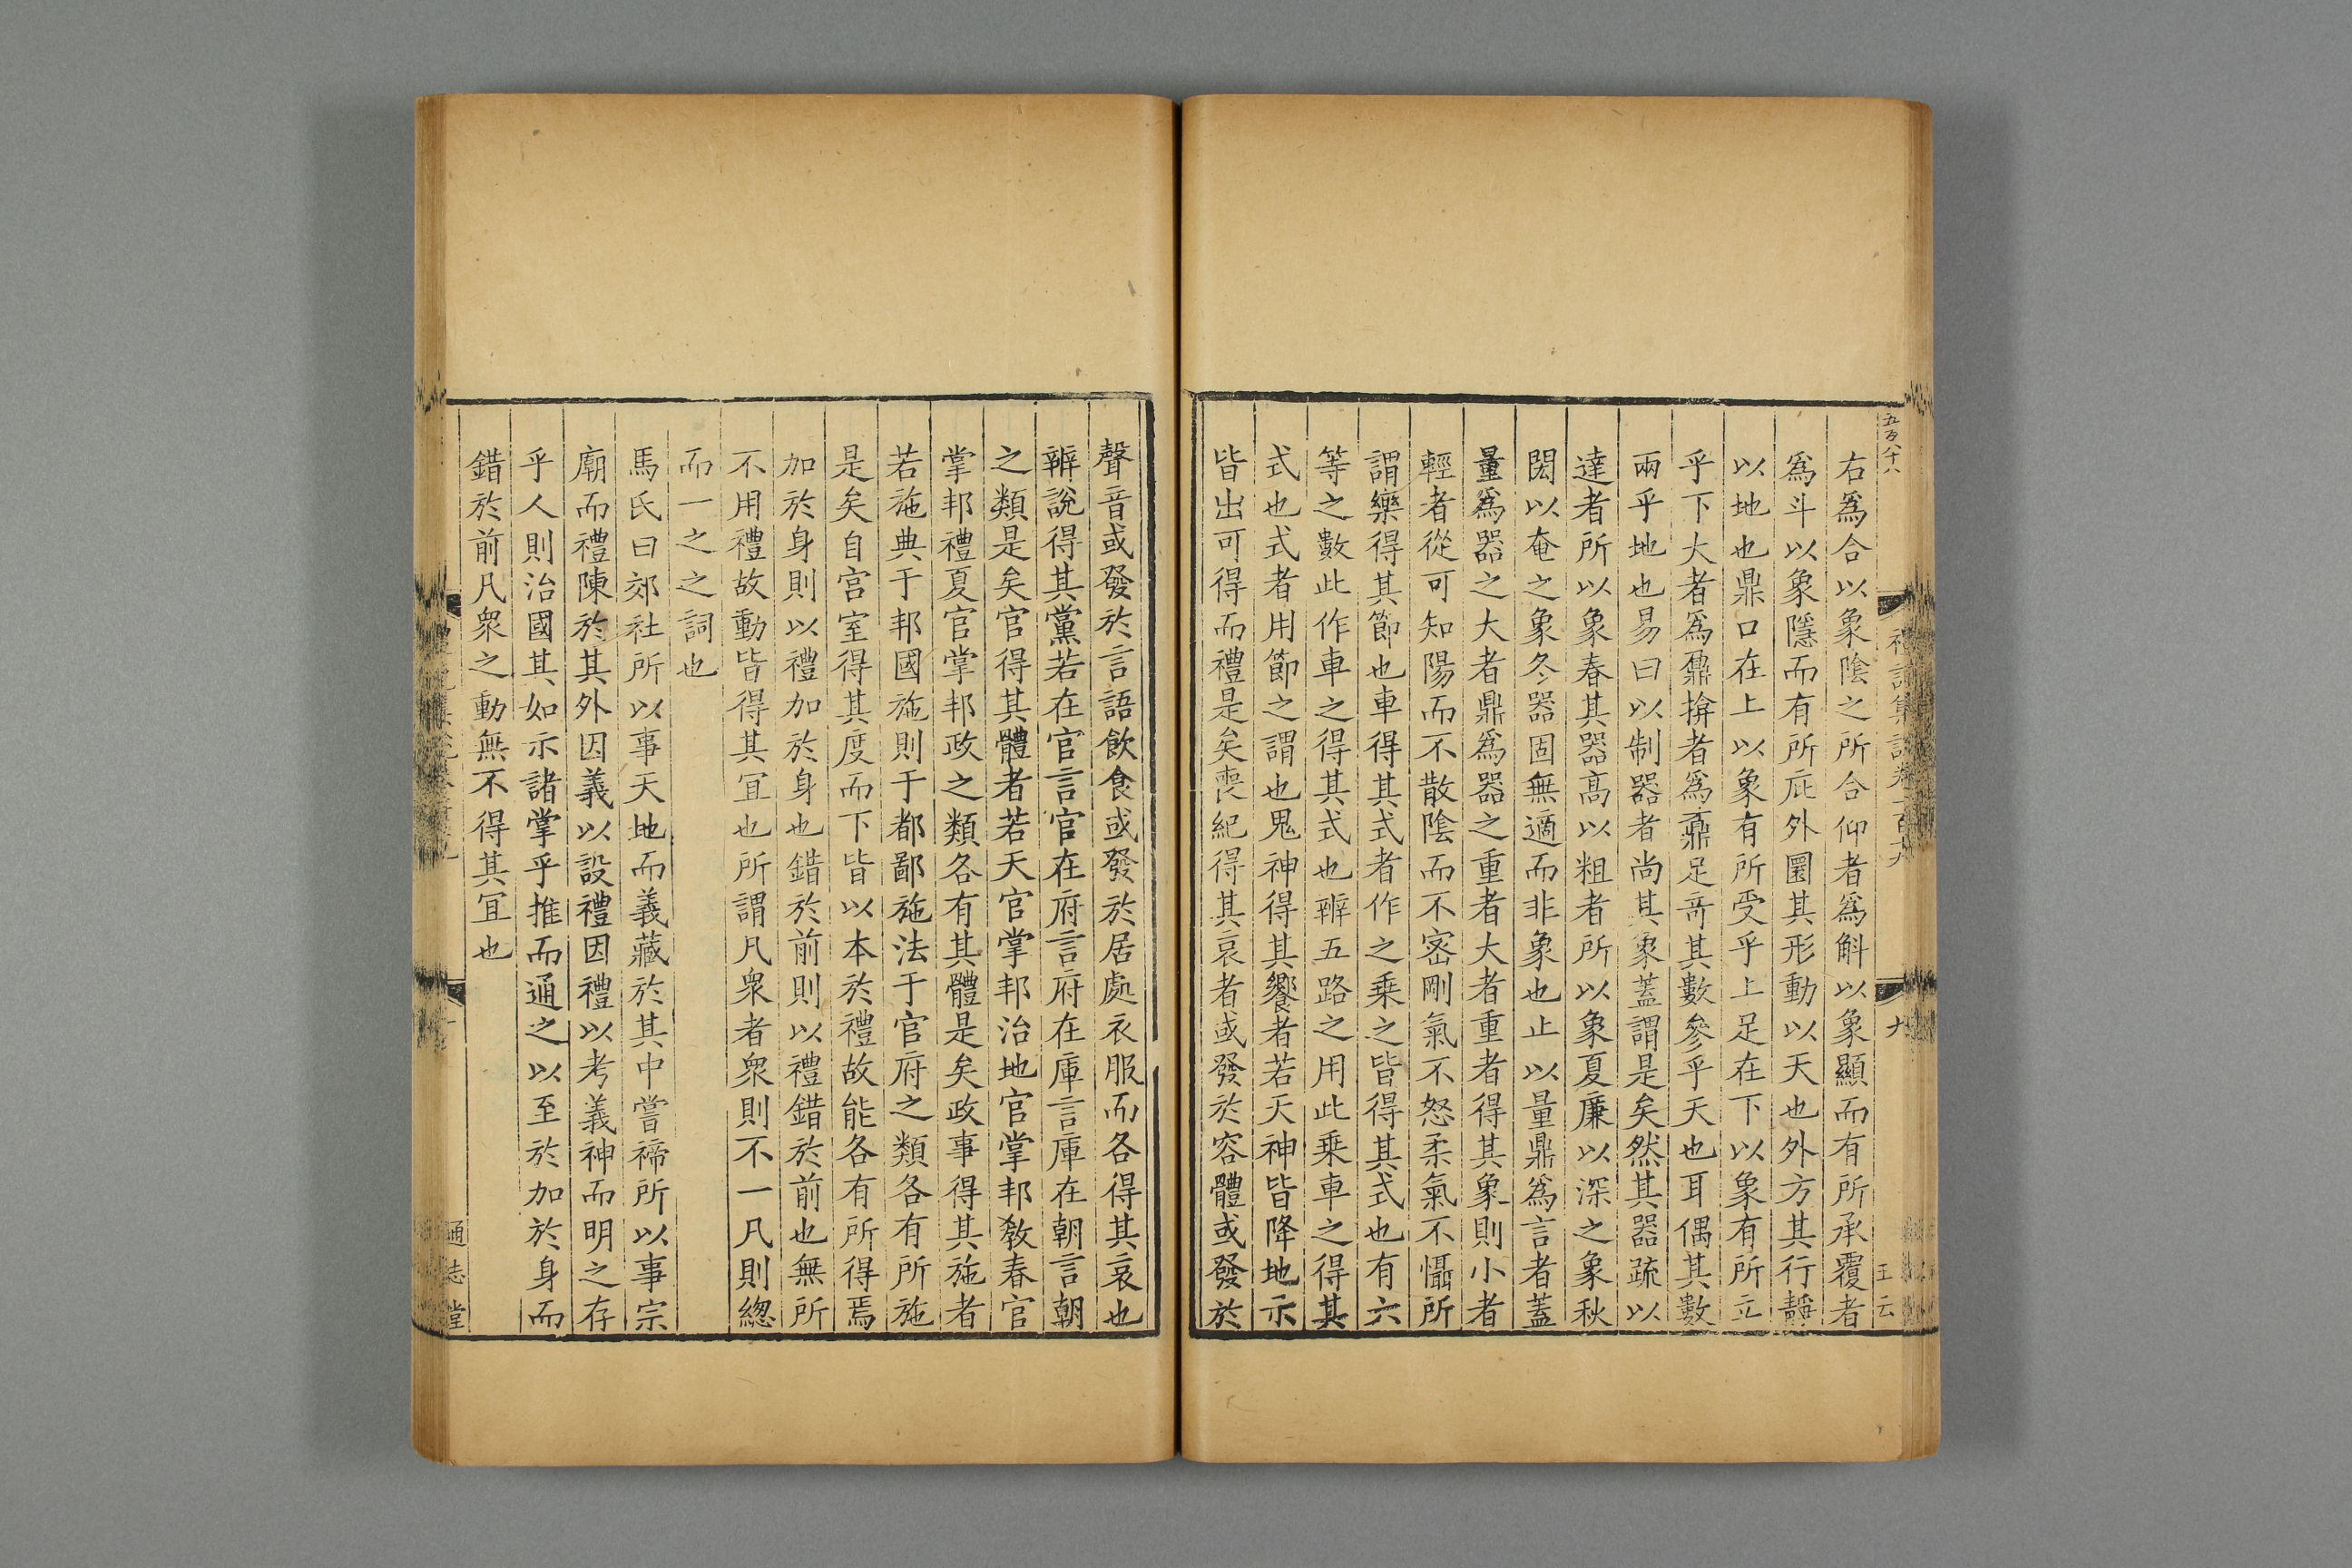 五百八十八
禮記集說卷一百九
九
王云
右爲合以象陰之所合仰者爲斛以象顯而有所承覆者
爲斗以象隱而有所庇外圜其形動以天也外方其行靜
以地也鼎口在上以象有所受乎上足在下以象有所立
乎下大者爲鼐揜者爲鼒足奇其數參乎天也耳偶其數
兩乎地也易曰以制器者尚其象蓋謂是矣然其器疏以
達者所以象春其器高以粗者所以象夏廉以深之象秋
閎以奄之象冬器固無適而非象也止以量鼎爲言者蓋
量爲器之大者鼎爲器之重者大者重者得其象則小者
輕者從可知陽而不散陰而不密剛氣不怒柔氣不懾所
謂樂得其節也車得其式者作之乘之皆得其式也有六
等之數此作車之得其式也辨五路之用此乘車之得其
式也式者用節之謂也鬼神得其饗者若天神皆降地示
皆出可得而禮是矣喪紀得其哀者或發於容體或發於
聲音或發於言語飲食或發於居處衣服而各得其哀也
辨說得其黨若在官言官在府言府在庫言庫在朝言朝
之類是矣官得其體者若天官掌邦治地官掌邦敎春官
掌邦禮夏官掌邦政之類各有其體是矣政事得其施者
若施典于邦國施則于都鄙施法于官府之類各有所施
是矣自宫室得其度而下皆以本於禮故能各有所得焉
加於身則以禮加於身也錯於前則以禮錯於前也無所
不用禮故動皆得其宜也所謂凡衆者衆則不一凡則緫
而一之之詞也
馬氏曰郊社所以事天地而義藏於其中嘗禘所以事宗
廟而禮陳於其外因義以設禮因禮以考義神而明之存
乎人則治國其如示諸掌乎推而通之以至於加於身而
錯於前凡衆之動無不得其宜也
通志堂